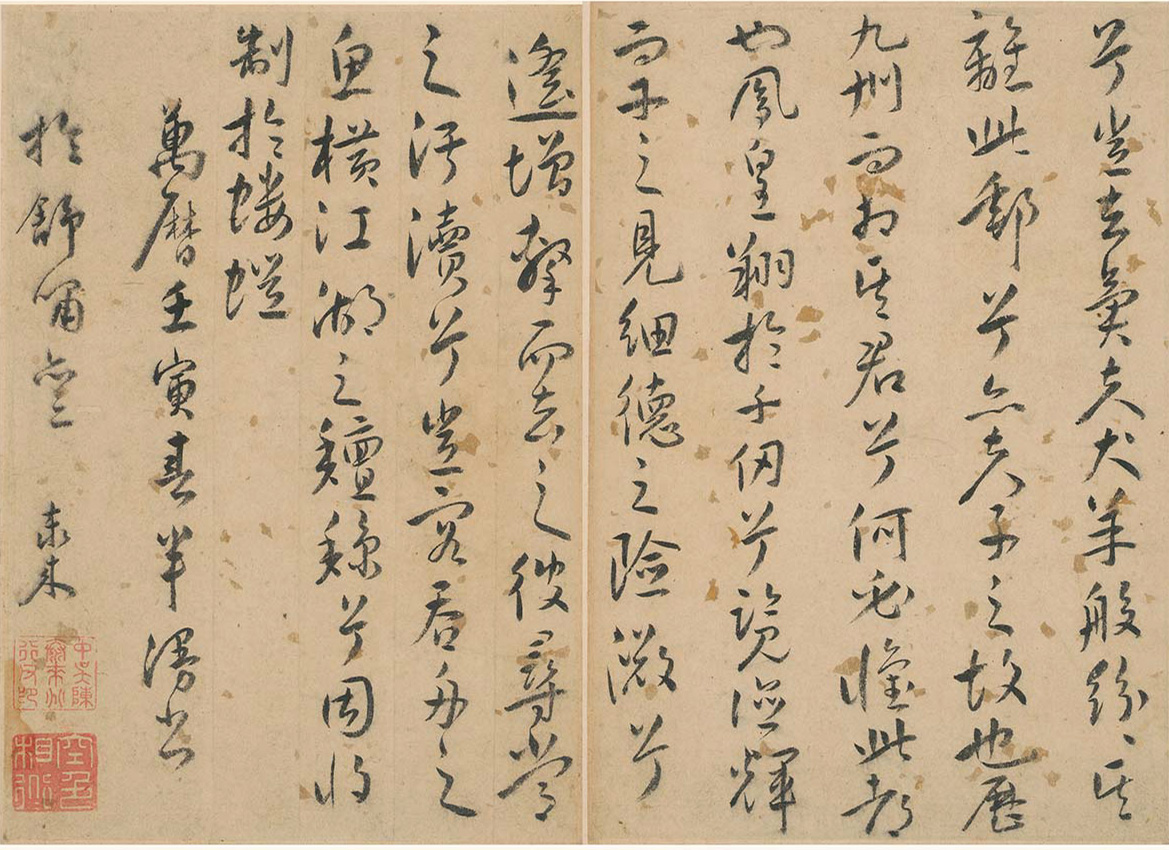 兮豈云異夫犬羊般紛〻其
離此郵兮亦夫子之故也歷
九州而相其君兮何必懷此都
也鳳皇翔於千仞兮覽德輝
而下之見細德之險微兮
遙增擊而去之彼尋常
之汙瀆兮豈容吞舟之
魚橫江湖之鱣鯨兮固將
制於螻螘
萬曆壬寅春半漫書
於舒